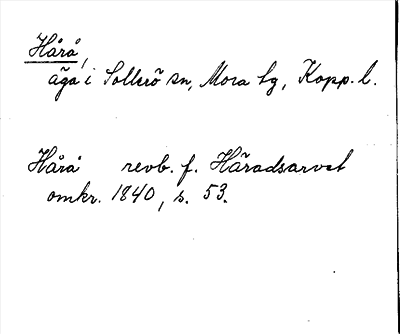 Hårå,
äga i Sollerö sn, Mora tg, Kopp. l.
Hårå revb. f. Häradsarvet
omkr. 1840, s. 53.